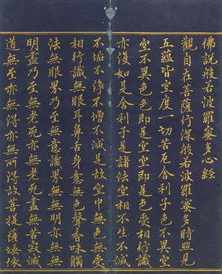 佛說般若波羅蜜多心經
觀自在菩薩行深般若波羅蜜多時照見
五蘊皆空度一切苦厄舍利子色不異
空空不異色色即是空空即是色受想行識
亦復如是舍利子是諸法空相不生不滅
不垢不淨不增不減是故空中無色無受
想行識無眼耳鼻舌身意無色聲香味觸
法無眼界乃至無意識界無無明亦無無
明盡乃至無老死亦無老死盡無苦滅
道無智亦無得以無所得故菩提薩埵